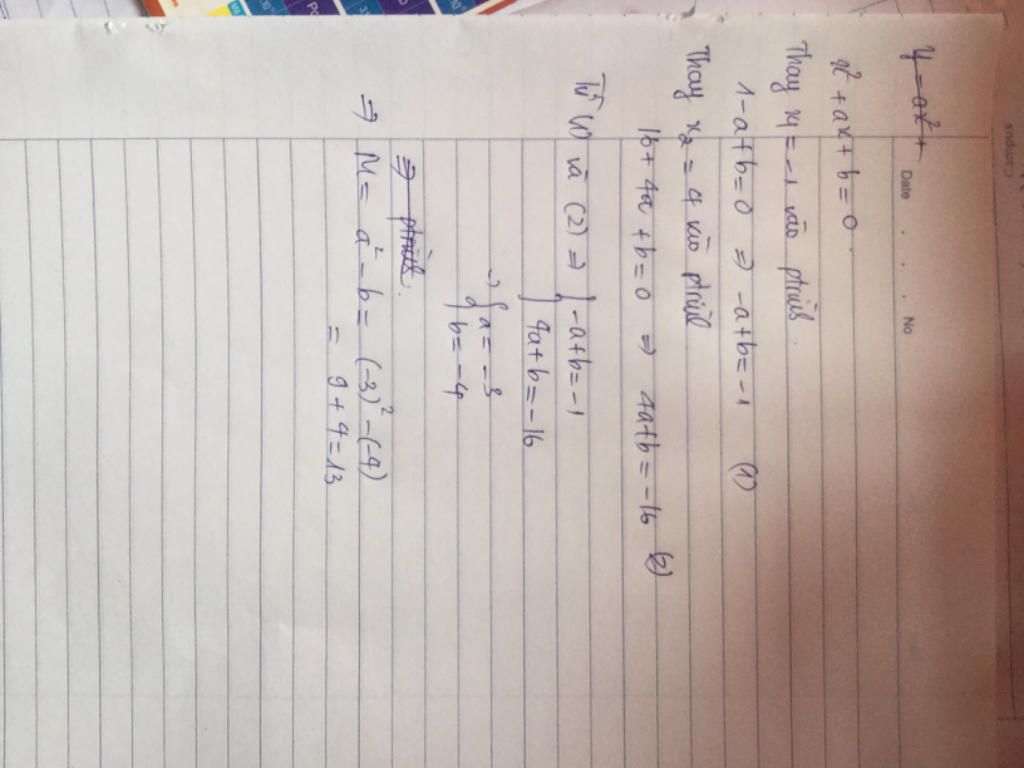 Date . . . No
y = ax² +
x² + ax + b = 0.
Thay x₁ = -1 vào ptrình.
1 - a + b = 0 => -a + b = -1 (1)
Thay x₂ = 4 vào ptrình
16 + 4a + b = 0 => 4a + b = -16 (2)
Từ (1) và (2) => { -a + b = -1
4a + b = -16
=> { a = -3
b = -4
=> ptrình.
=> M = a² - b = (-3)² - (-4)
= 9 + 4 = 13
campus